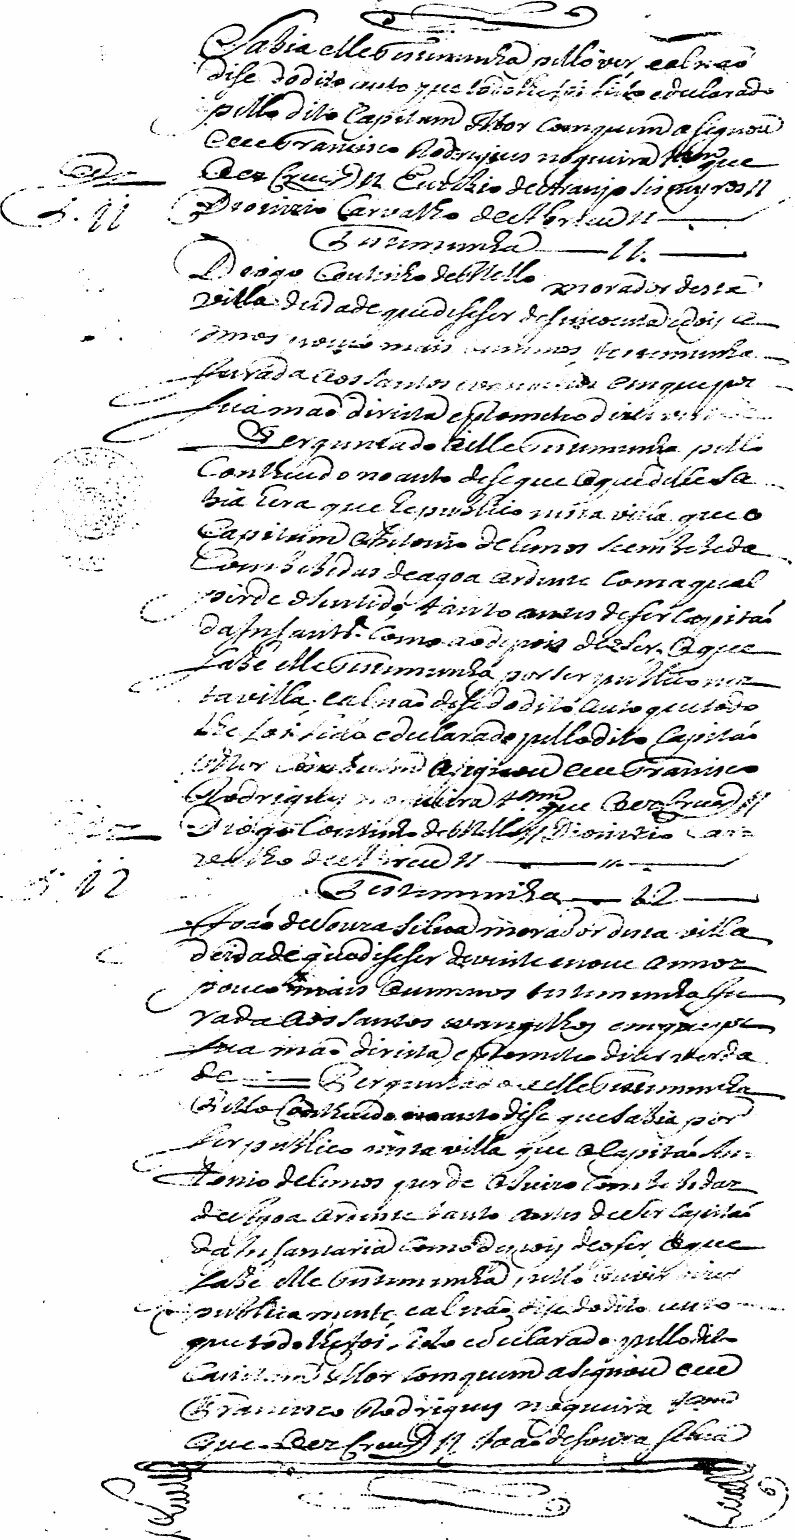 Sabia elle testimunha pello ver e al não
dise do dito auto que todo lhe foi lido e declarado
pello dito Capitam Mor com quem asignou
e eu Francisco Rodrigues nogueira tam que
o escrevy // Euzebio de Araujo //
Dionizio Carvalho de Abreu //
T. 11
Testimunha 11
Diogo Coutinho de Mello morador desta
villa de idade que dise ser de sincoenta e dois a
nnos pouco mais ou menos testemunha
jurada aos santos em que pos
sua mão direita e prometeo dizer
Perguntado a elle testimunha pello
Contheudo no auto dise que o que delle sa
bia hera que he publico nesta villa que o
Capitam Antonio de Lemos se embebeda
Com bebidas de agoa ardente com a qual
perde o sentido tanto antes de ser Capitão
da Infant.ª como ao depois de o ser, o que
sabe elle testimunha por ser publico nes
ta villa e al não dise do dito auto que todo
lhe foi lido e declarado pello dito Capitão
Mor com quem asignou e eu Francisco
Rodrigues nogueira tam que o escrevy //
Diogo Coutinho de Mello // Dionizio Car
valho de Abreu //
T. 12
Testimunha 12
João de Souza Silva morador desta villa
de idade que dise ser de vinte e nove annos
pouco mais ou menos testimunha ju
rada aos santos evangelhos em que pos
sua mão direita e prometeo dizer verda
de Perguntado a elle testimunha
pello Contheudo no auto dise que sabia por
ser publico nesta villa que o Capitão An
tonio de Lemos perde o juizo com bebidas
de Agoa ardente tanto antes de ser Capitão
da Infantaria como depois de o ser, o que
sabe elle testimunha pello ouvir dizer
publicamente e al não dise do dito auto
que todo lhe foi lido e declarado pello dito
Capitam Mor com quem asignou e eu
Francisco Rodrigues nogueira tam
que o escrevy // João de Souza Silva